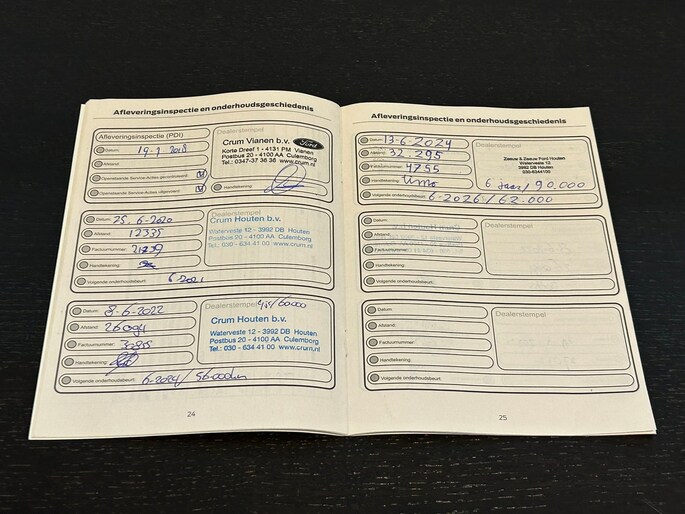 Afleveringsinspectie en onderhoudsgeschiedenis
Afleveringsinspectie (PDI)
Datum: 19-1 2018
Afstand:
Openstaande Service-Acties gecontroleerd
Openstaande Service-Acties uitgevoerd
Dealerstempel
Crum Vianen b.v. Ford
Korte Dreef 1 - 4131 PM Vianen
Postbus 20 - 4100 AA Culemborg
Tel.: 0347-37 36 36 www.crum.nl
Handtekening:
Datum: 25-6-2020
Afstand: 12335
Factuurnummer:
Handtekening:
Volgende onderhoudsbeurt: 6-2021
Dealerstempel
Crum Houten b.v.
Waterveste 12 - 3992 DB Houten
Postbus 20 - 4100 AA Culemborg
Tel.: 030 - 634 41 00 www.crum.nl
Datum: 8-6-2022
Afstand:
Factuurnummer:
Handtekening:
Volgende onderhoudsbeurt: 6-2024/
Dealerstempel 4jr/60000
Crum Houten b.v.
Waterveste 12 - 3992 DB Houten
Postbus 20 - 4100 AA Culemborg
Tel.: 030 - 634 41 00 www.crum.nl
24
Afleveringsinspectie en onderhoudsgeschiedenis
Datum: 13-6-2024
Afstand: 32.295
Factuurnummer: 4755
Handtekening:
Volgende onderhoudsbeurt: 6-2026/62.000
Dealerstempel
Zeeuw & Zeeuw Ford Houten
Waterveste 12
3992 DB Houten
030-6344100
6 jaar/90.000
Datum:
Afstand:
Factuurnummer:
Handtekening:
Volgende onderhoudsbeurt:
Dealerstempel
Datum:
Afstand:
Factuurnummer:
Handtekening:
Volgende onderhoudsbeurt:
Dealerstempel
25